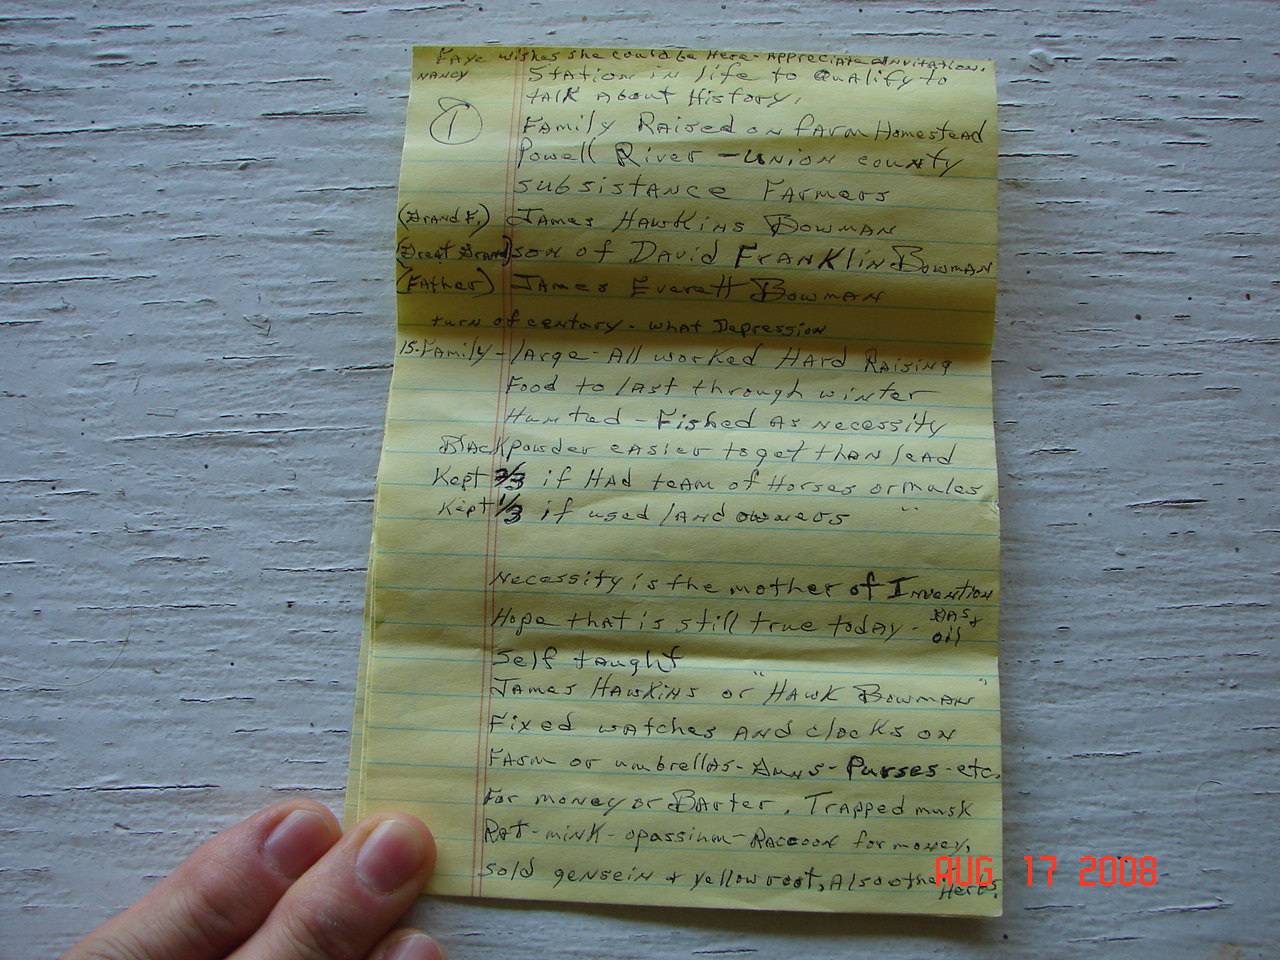 Faye wishes she could be Here. Appreciate invitation.
NANCY
Station in life to Qualify to
talk About History.
1
Family Raised on farm Homestead
Powell River - Union county
subsistance Farmers
(Grand F.) James Hawkins Bowman
(Great Grand) son of David Franklin Bowman
(Father) James Everett Bowman
turn of century. what Depression
15-Family-large-All worked Hard Raising
Food to last through winter
Hunted - Fished As necessity
Blackpowder easier to get than lead
Kept 2/3 if HAd team of Horses or mules
Kept 1/3 if used landowners "
Necessity is the mother of Invention
Hope that is still true today - gas + oil
Self taught
James Hawkins or "Hawk Bowman"
Fixed watches and clocks on
Farm or umbrellas-Guns-Purses-etc.
For money or Barter. Trapped musk
Rat-mink-opassium-Raccoon for money.
Sold gensein + yellowroot, Also other Herbs.
AUG 17 2008